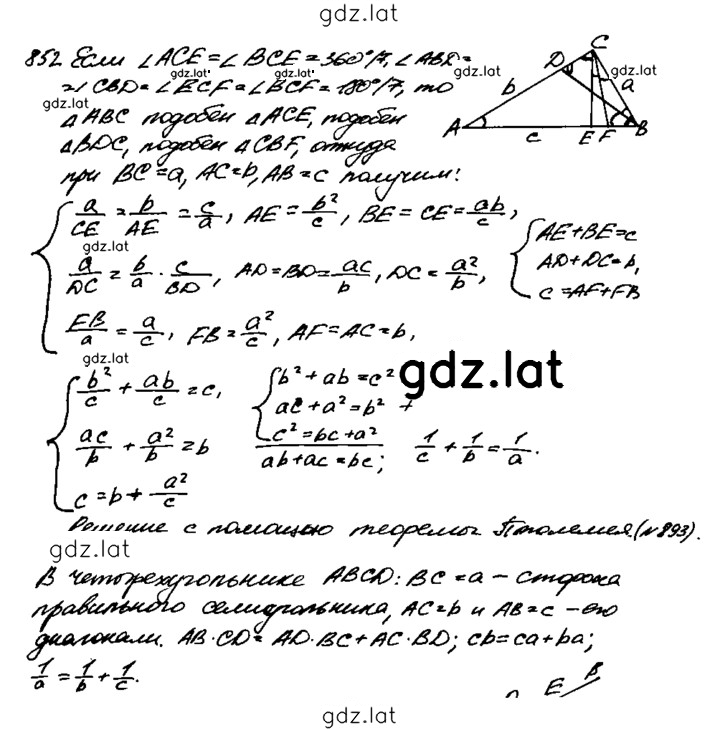 gdz.lat
852 Если ∠ACE = ∠BCE = 360°/7, ∠ABD =
= ∠CBD = ∠ECF = ∠BCF = 180°/7, то
△ABC подобен △ACE, подобен
△BDC, подобен △CBF, откуда
при BC = a, AC = b, AB = c получим:
gdz.lat gdz.lat gdz.lat gdz.lat gdz.lat
A B C D E F a b c
a/CE = b/AE = c/a, AE = b²/c, BE = CE = ab/c,
gdz.lat
a/DC = b/a · c/BD, AD = BD = ac/b, DC = a²/b,
EB/a = a/c, FB = a²/c, AF = AC = b,
AE + BE = c
AD + DC = b,
c = AF + FB
gdz.lat
b²/c + ab/c = c,
ac/b + a²/b = b
c = b + a²/c
b² + ab = c²
ac + a² = b² +
c² = bc + a²
ab + ac = bc; 1/c + 1/b = 1/a.
gdz.lat
Решение с помощью теоремы Птолемея. (№893).
gdz.lat
В четырехугольнике ABCD: BC = a – сторона
правильного семиугольника, AC = b и AB = c – его
диагонали. AB · CD = AD · BC + AC · BD; cb = ca + ba;
1/a = 1/b + 1/c.
E B
gdz.lat